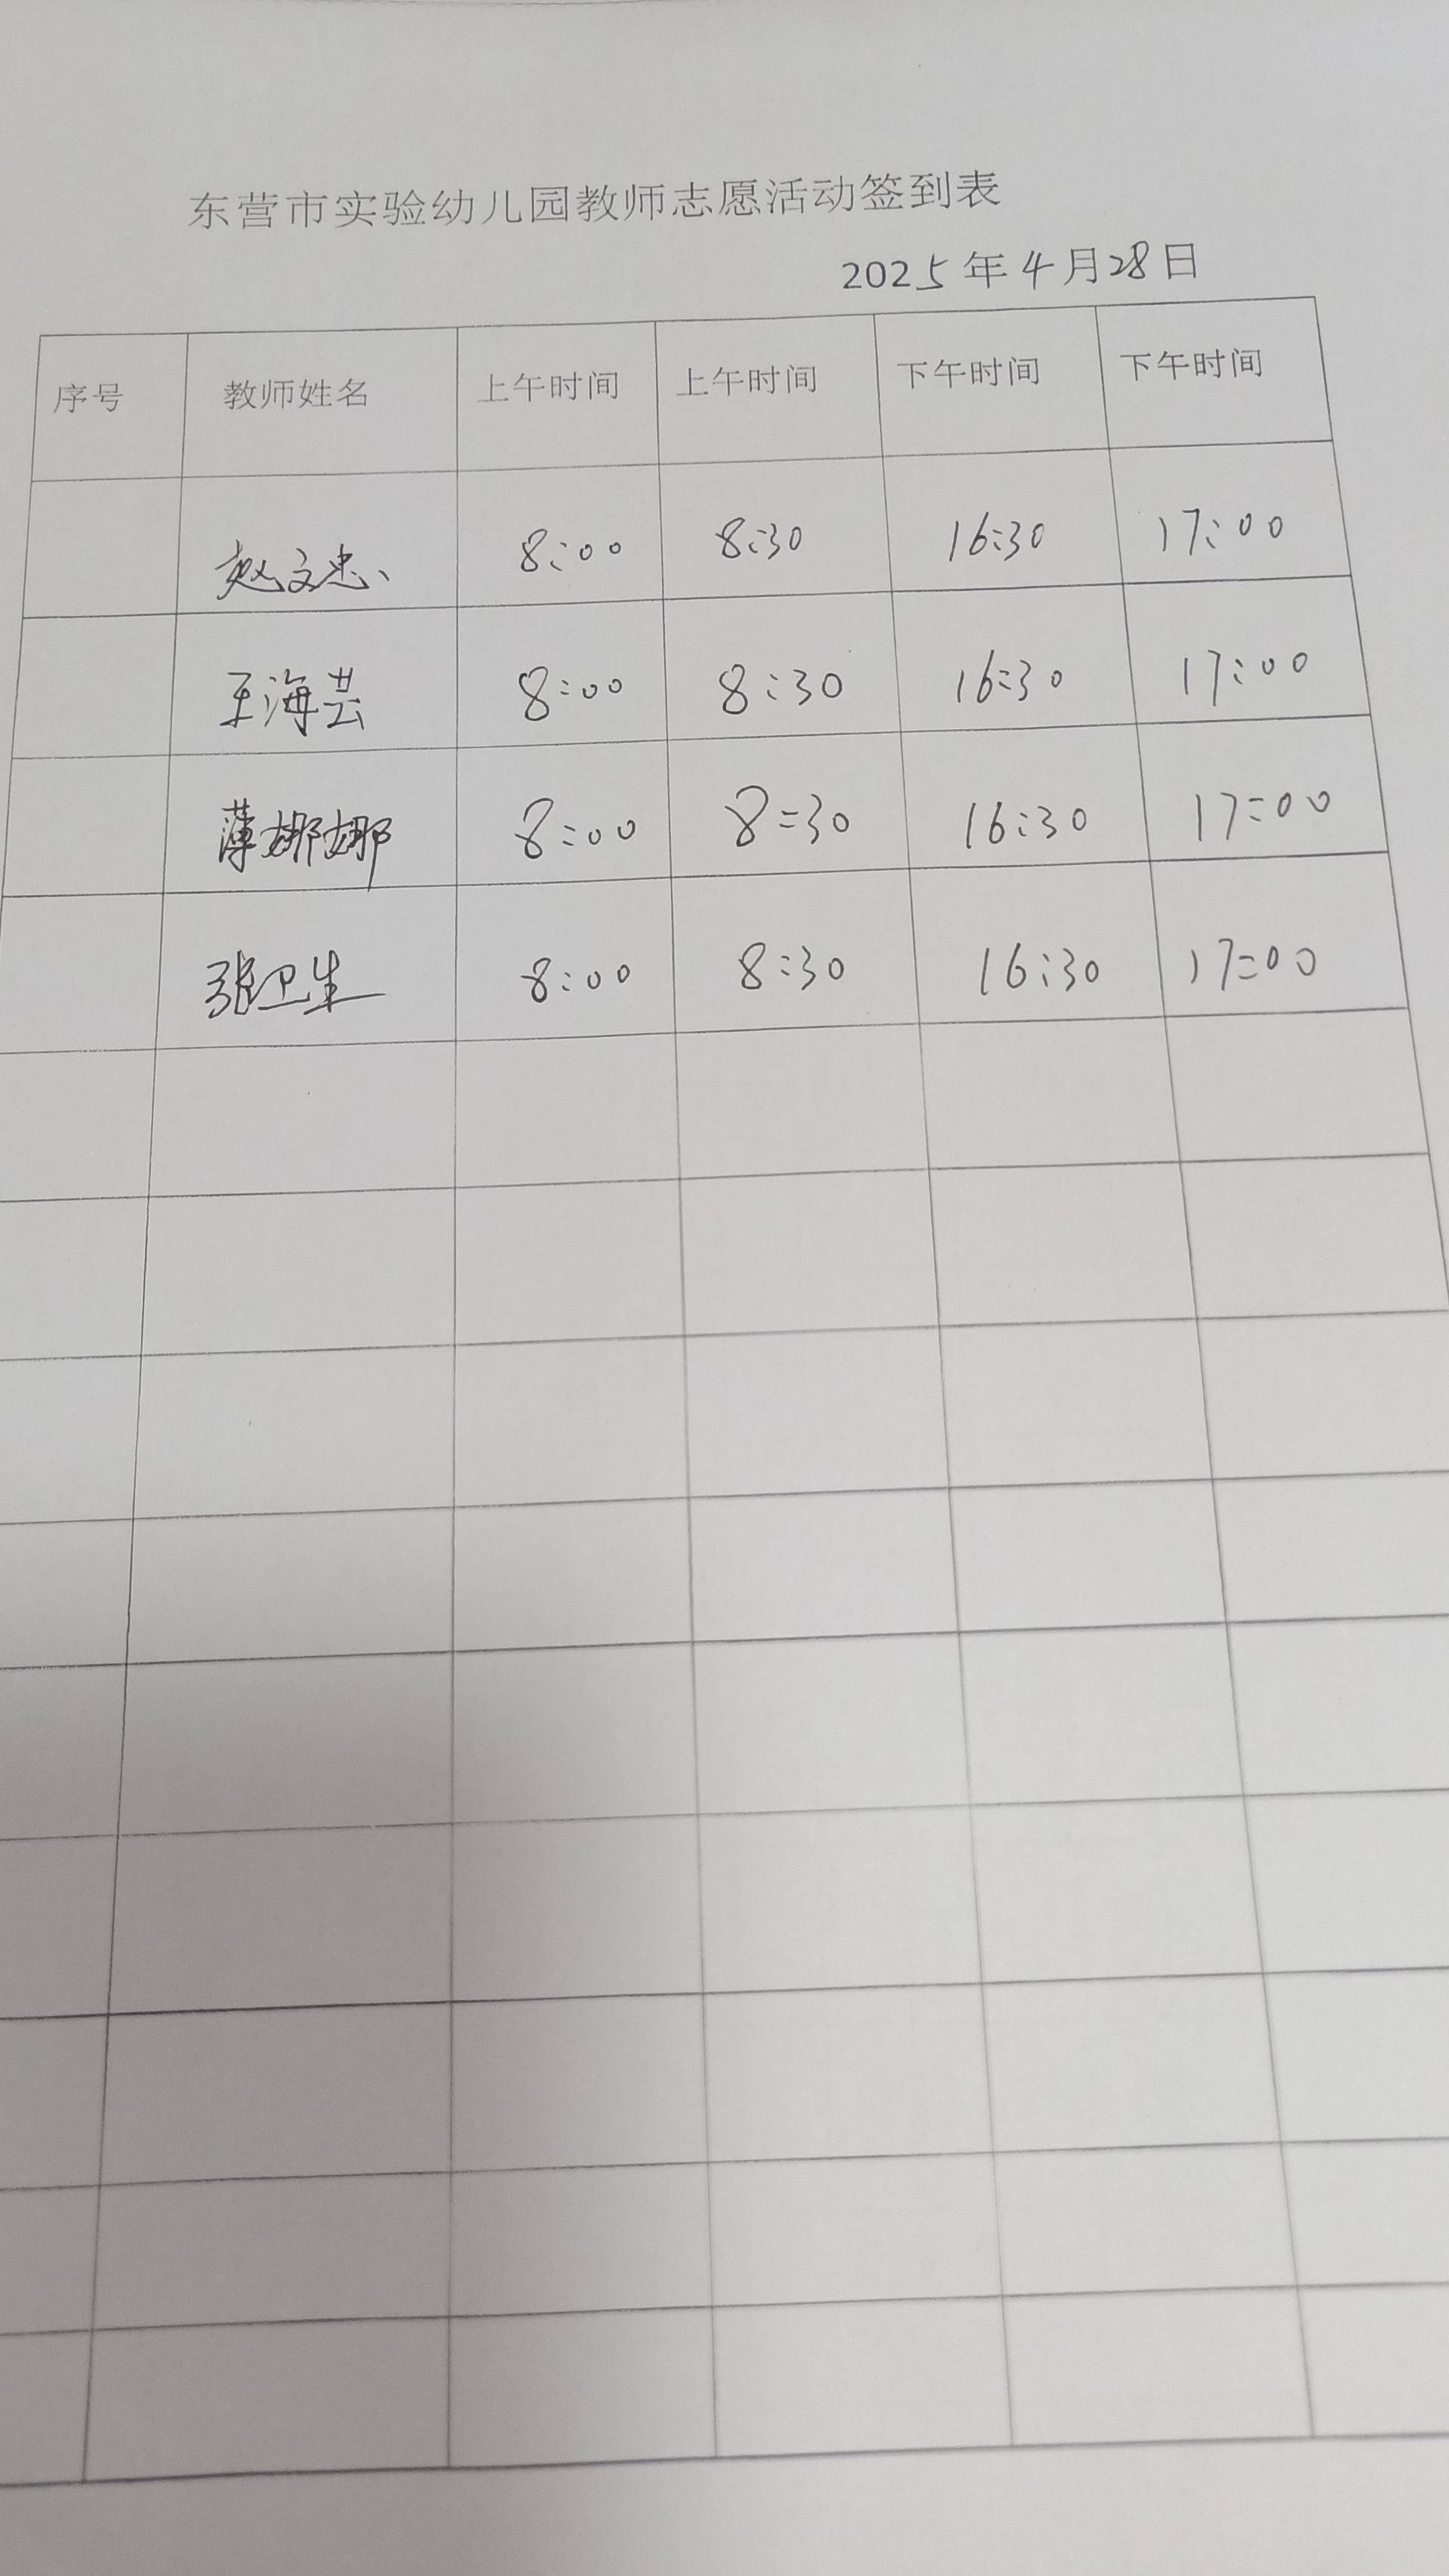 东营市实验幼儿园教师志愿活动签到表
2025年4月28日
序号 教师姓名 上午时间 上午时间 下午时间 下午时间
赵文忠 8:00 8:30 16:30 17:00
王海芸 8:00 8:30 16:30 17:00
薄娜娜 8:00 8:30 16:30 17:00
张卫生 8:00 8:30 16:30 17:00